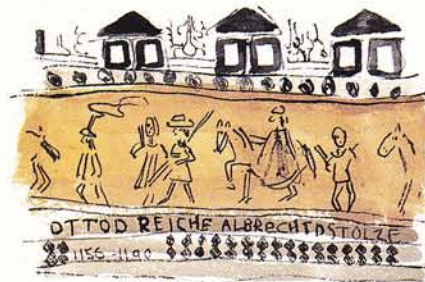 OTTO D REICHE ALBRECHT D STOLZE
1155-1190